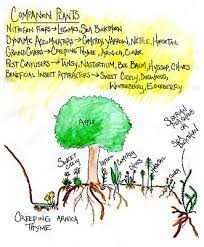 COMPANION PLANTS
NITROGEN FIXERS → LEGUMES, SEA BUCKTHORN
DYNAMIC ACCUMULATORS → COMFREY, YARROW, NETTLE, HORSETAIL
GROUND COVERS → CREEPING THYME, ARNICA, CLOVER
PEST CONFUSERS → TANSY, NASTURTIUM, BEE BALM, HYSSOP, CHIVES
BENEFICIAL INSECT ATTRACTORS → SWEET CICELY, DOGWOOD,
WINTERBERRY, ELDERBERRY
APPLE
SWEET CICELY
COMFREY
CHIVES
CLOVER
SIBERIAN
CREEPING ARNICA
THYME